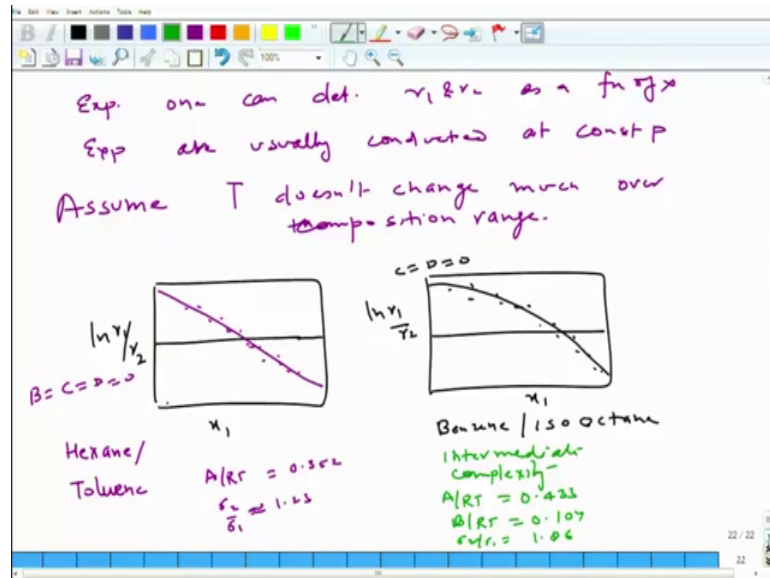 File Edit View Insert Actions Tools Help
B I
100%
Exp. one can det. γ1 & γ2 as a fn of x
Exp are usually conducted at const P
Assume T doesn't change much over
composition range.
C = D = 0
ln γ1/γ2
ln γ1/γ2
B = C = D = 0
x1
x1
Hexane/
Toluene
A/RT = 0.352
σ2/σ1 ≈ 1.23
Benzene / iso octane
Intermediate
complexity
A/RT = 0.433
B/RT = 0.107
σ2/σ1 = 1.06
22 / 22
22